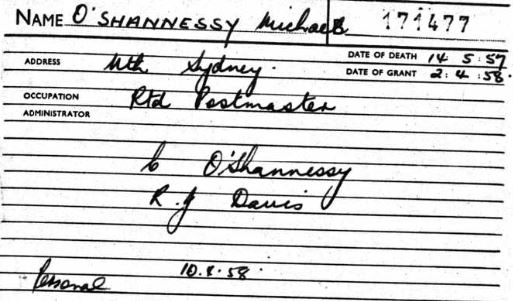 NAME O'SHANNESSY Michael 171477
DATE OF DEATH 14 5:57
ADDRESS Nth Sydney.
DATE OF GRANT 2:4:58.
OCCUPATION Rtd Postmaster
ADMINISTRATOR
C O'Shannessy
R. J Davis
Personal 10.8.58.